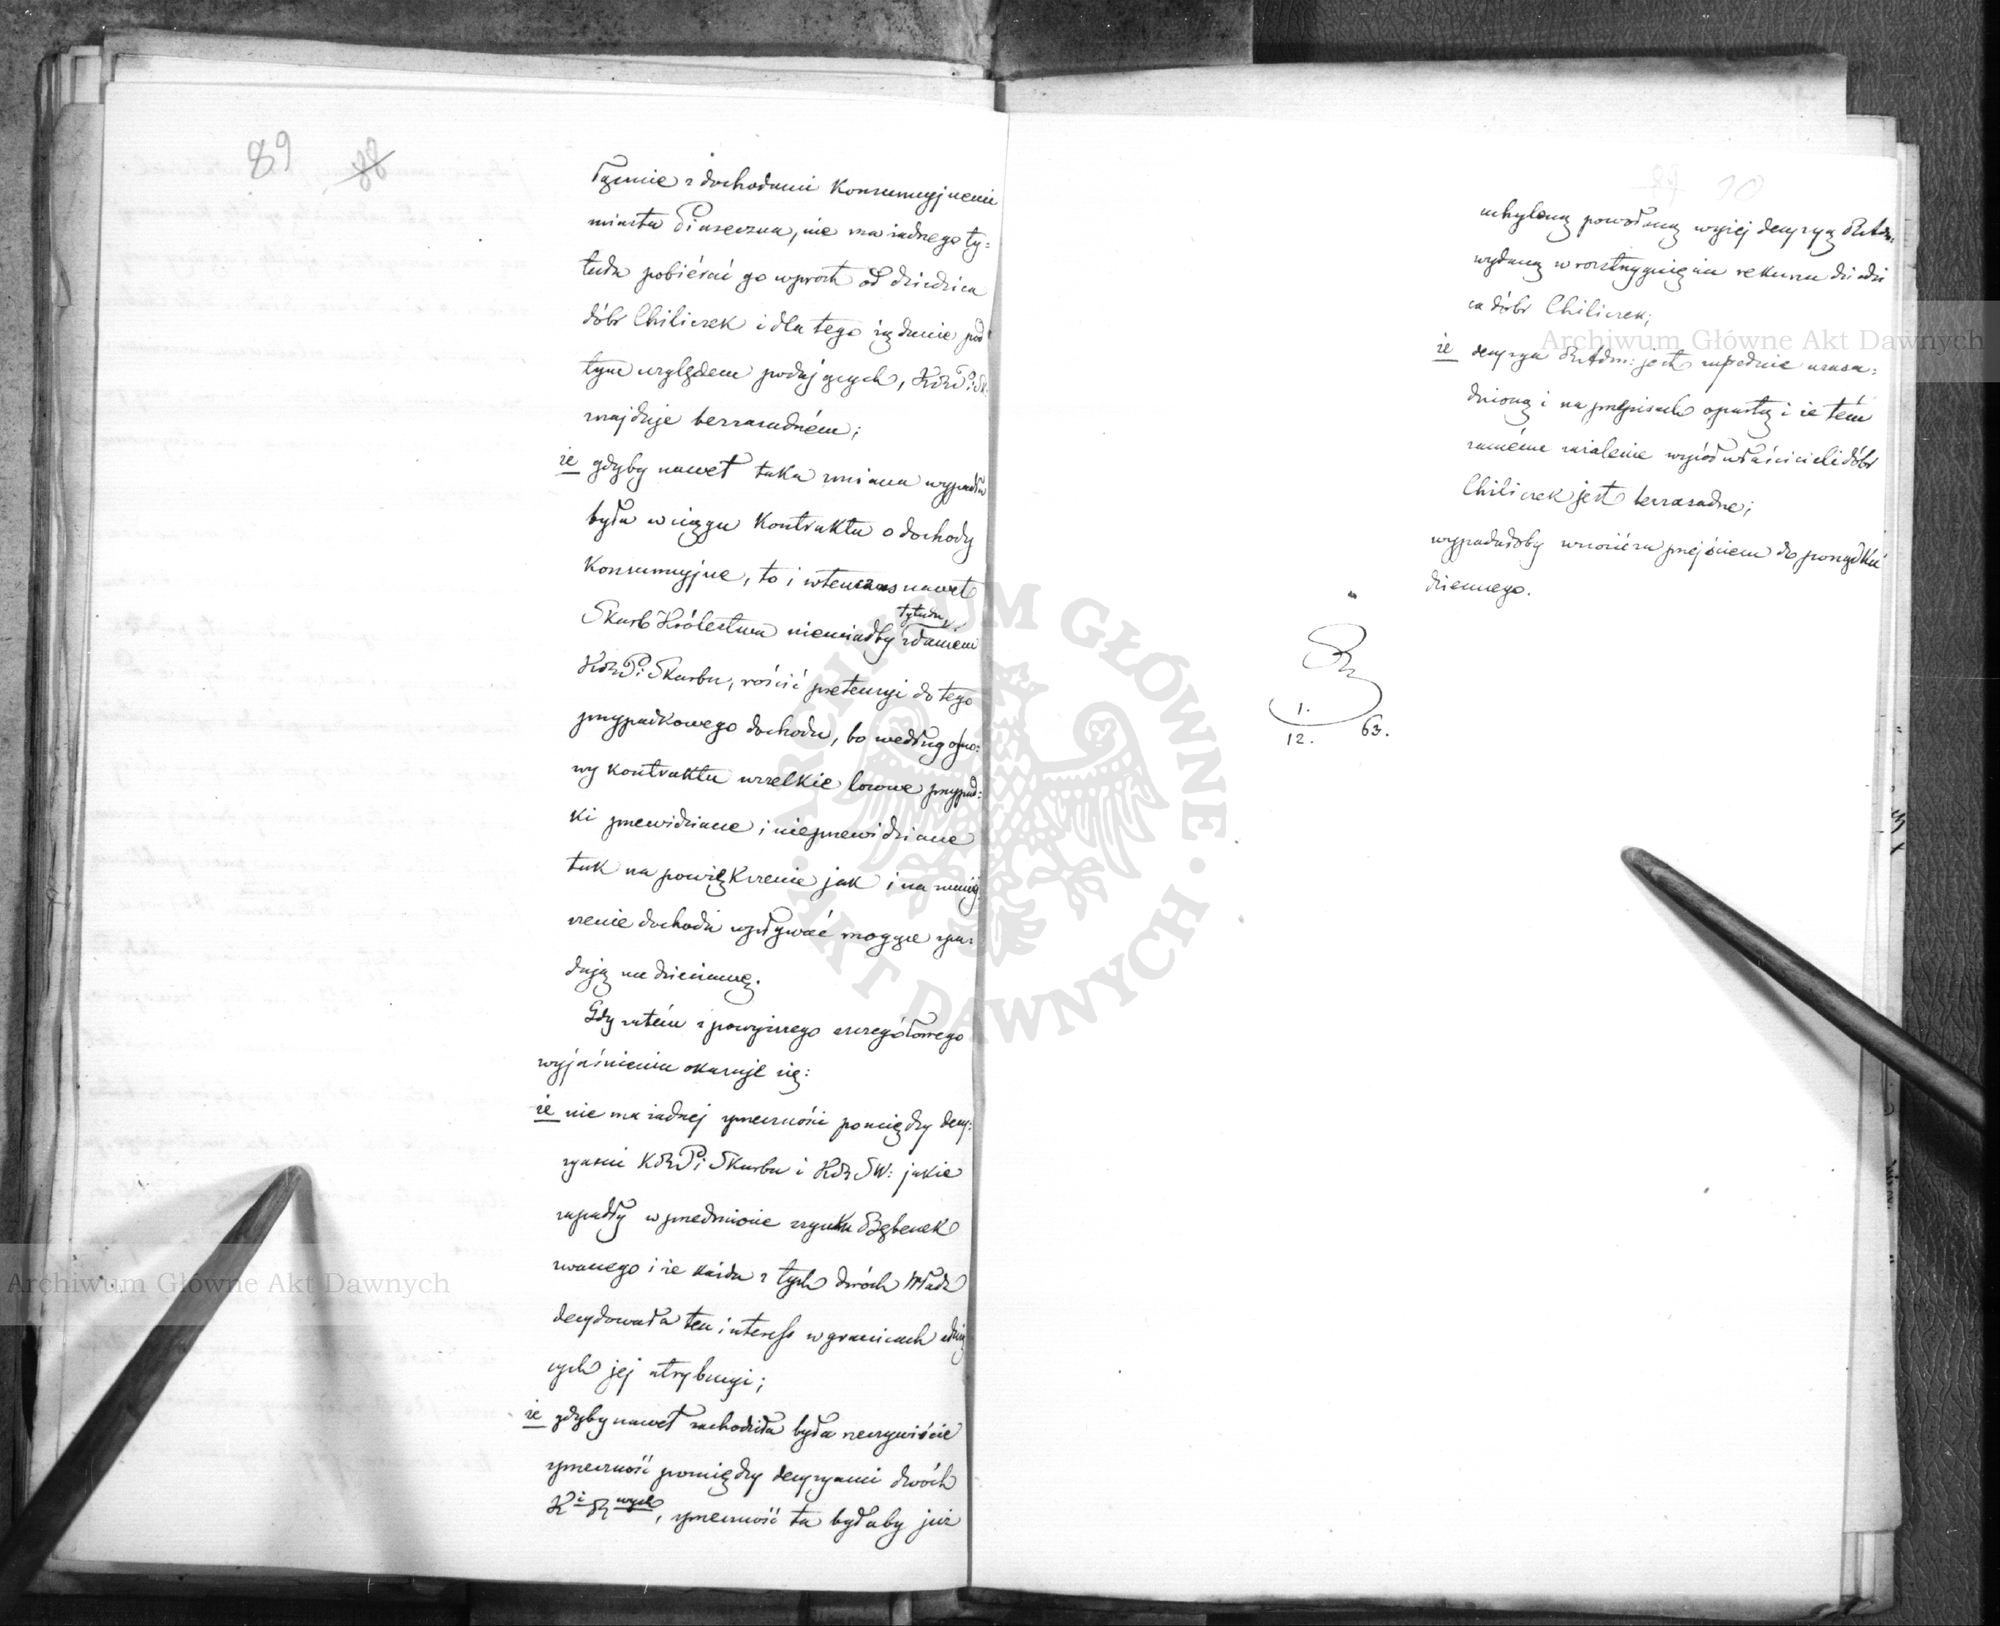 89 88
łącznie z dochodami Konsumcyjnemi
miasta Piaseczna, nie ma żadnego ty=
tułu pobiérać go wprost od dziedzica
dóbr Chiliczek i dla tego żądanie pod
tym względem podających, KRP: Sk:
znajduje bezzasadném;
że gdyby nawet taka zmiana wypadła
była w ciągu Kontraktu o dochody
Konsumcyjne, to i wtenczas nawet
Skarb Królestwa niemiałby tytułu zdaniem
KRP: i Skarbu, rościć pretensyi do tego
przypadkowego dochodu, bo według osno=
wy kontraktu wszelkie losowe przypad=
ki przewidziane i nieprzewidziane
tak na powiększenie jak i na zmniej
szenie dochodu wpływać mogące spa=
dają na dzierżawę.
Gdy zatém z powyższego szczegółowego
wyjaśnienia okazuje się:
że nie ma żadnej sprzeczności pomiędzy decy=
zyami KRP i Skarbu i KRSW: jakie
zapadły w przedmiocie szynku Bębenek
zwanego i że każda z tych dwóch Władz
decydowała ten interess w granicach
cych jej atrybucyi;
że gdyby nawet zachodziła była rzeczywiście
sprzeczność pomiędzy decyzyami dwóch
K i R wych, sprzeczność ta byłaby już
uchyloną powołaną wyżej decyzyą RAdm:
wydaną w rozstrzygnięciu rekursu dziedzi
ca dóbr Chiliczek;
że decyzya RAdm: jest zupełnie uzasa=
dnioną i na przepisach opartą i że tém
samém zażalenie współwłaścicieli dóbr
Chiliczek jest bezzasadne;
wypadałoby wnieść przejściem do porządku
dziennego.
1.
12. 63.
Archiwum Główne Akt Dawnych
Archiwum Główne Akt Dawnych
ARCHIWUM GŁÓWNE AKT DAWNYCH